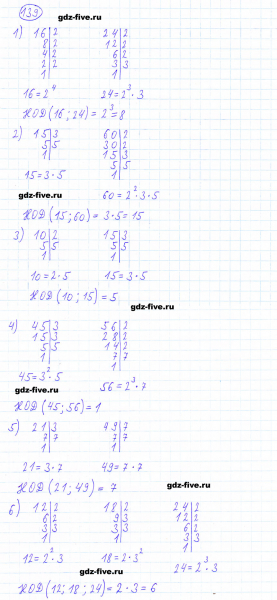 139
gdz-five.ru
1) 16|2 24|2
8|2 12|2
4|2 6|2
2|2 3|3
1| 1|
16=2⁴ 24=2³·3
НОД(16;24)=2³=8
gdz-five.ru
2) 15|3 60|2
5|5 30|2
1| 15|3
5|5
1|
15=3·5
gdz-five.ru
60=2²·3·5
НОД(15;60)=3·5=15
3) 10|2 15|3
5|5 5|5
1| 1|
10=2·5 15=3·5
НОД(10;15)=5
gdz-five.ru
4) 45|3 56|2
15|3 28|2
5|5 14|2
1| 7|7
1|
45=3²·5
56=2³·7
gdz-five.ru
НОД(45;56)=1
5) 21|3 49|7
7|7 7|7
1| 1|
gdz-five.ru
21=3·7 49=7·7
НОД(21;49)=7
6) 12|2 18|2 24|2
6|2 9|3 12|2
3|3 3|3 6|2
1| 1| 3|3
1|
12=2²·3 18=2·3²
24=2³·3
gdz-five.ru
НОД(12;18;24)=2·3=6